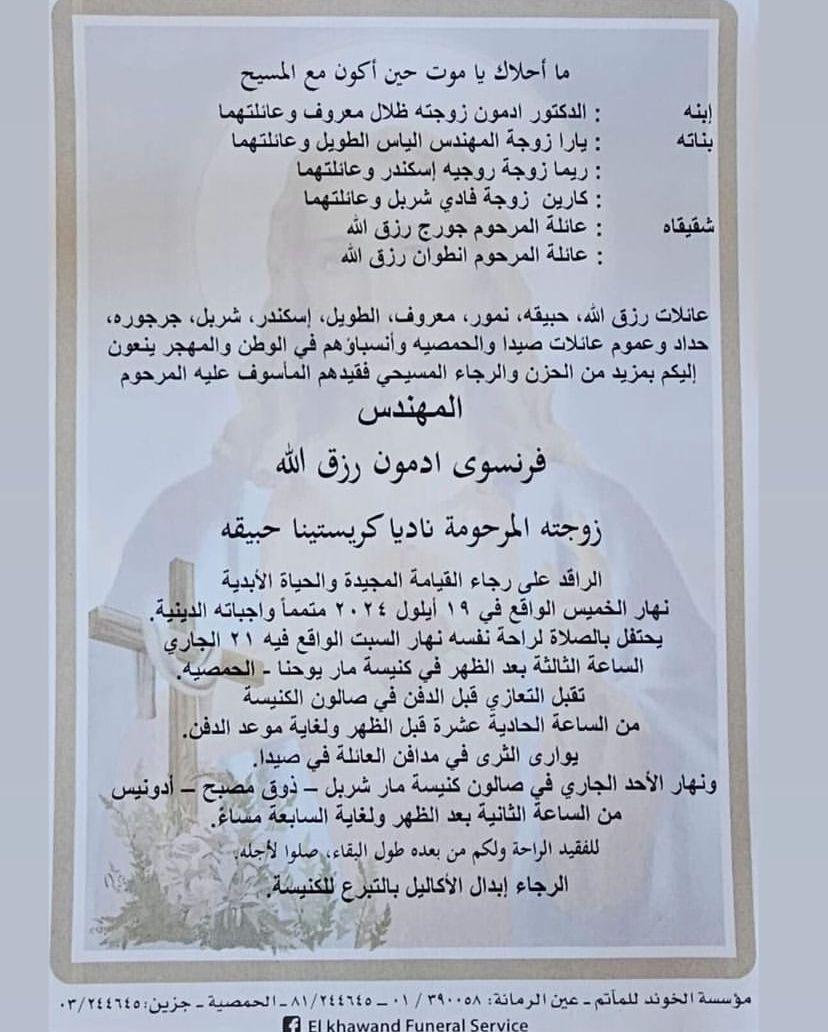 ما أحلاك يا موت حين أكون مع المسيح
إبنه : الدكتور ادمون زوجته ظلال معروف وعائلتهما
بناته : يارا زوجة المهندس الياس الطويل وعائلتهما
: ريما زوجة روجيه إسكندر وعائلتهما
: كارين زوجة فادي شربل وعائلتهما
شقيقاه : عائلة المرحوم جورج رزق الله
: عائلة المرحوم انطوان رزق الله
عائلات رزق الله، حبيقه، نمور، معروف، الطويل، إسكندر، شربل، جرجوره،
حداد وعموم عائلات صيدا والحمصيه وأنسباؤهم في الوطن والمهجر ينعون
إليكم بمزيد من الحزن والرجاء المسيحي فقيدهم المأسوف عليه المرحوم
المهندس
فرنسوى ادمون رزق الله
زوجته المرحومة ناديا كريستينا حبيقه
الراقد على رجاء القيامة المجيدة والحياة الأبدية
نهار الخميس الواقع في ١٩ أيلول ٢٠٢٤ متمماً واجباته الدينية.
يحتفل بالصلاة لراحة نفسه نهار السبت الواقع فيه ٢١ الجاري
الساعة الثالثة بعد الظهر في كنيسة مار يوحنا - الحمصيه.
تقبل التعازي قبل الدفن في صالون الكنيسة
من الساعة الحادية عشرة قبل الظهر ولغاية موعد الدفن.
يوارى الثرى في مدافن العائلة في صيدا.
ونهار الأحد الجاري في صالون كنيسة مار شربل – ذوق مصبح – أدونيس
من الساعة الثانية بعد الظهر ولغاية السابعة مساءً.
للفقيد الراحة ولكم من بعده طول البقاء، صلوا لأجله.
الرجاء إبدال الأكاليل بالتبرع للكنيسة.
مؤسسة الخوند للمآتم - عين الرمانة: ٣٩٠٠٥٨ / ٠١ - ٨١/٢٤٤٦٤٥ - الحمصية - جزين: ٠٣/٢٤٤٦٤٥
El khawand Funeral Service